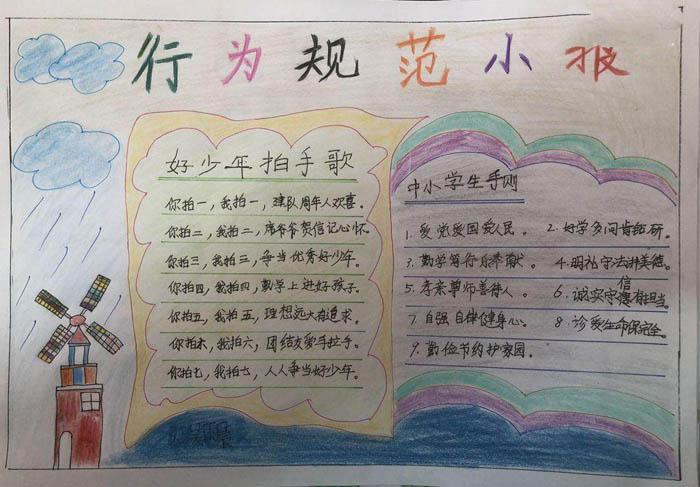 行为规范小报
好少年拍手歌
你拍一，我拍一，建队周年人欢喜。
你拍二，我拍二，席爷爷贺信记心怀。
你拍三，我拍三，争当优秀好少年。
你拍四，我拍四，勤学上进好孩子。
你拍五，我拍五，理想远大有追求。
你拍六，我拍六，团结友爱手拉手。
你拍七，我拍七，人人争当好少年。
中小学生手则
1. 爱党爱国爱人民。
2. 好学多问肯钻研。
3. 勤学笃行乐奉献。
4. 明礼守法讲美德。
5. 孝亲尊师善待人。
6. 诚实守信有担当。
7. 自强自律健身心。
8. 诊爱生命保安全。
9. 勤俭节约护家园。